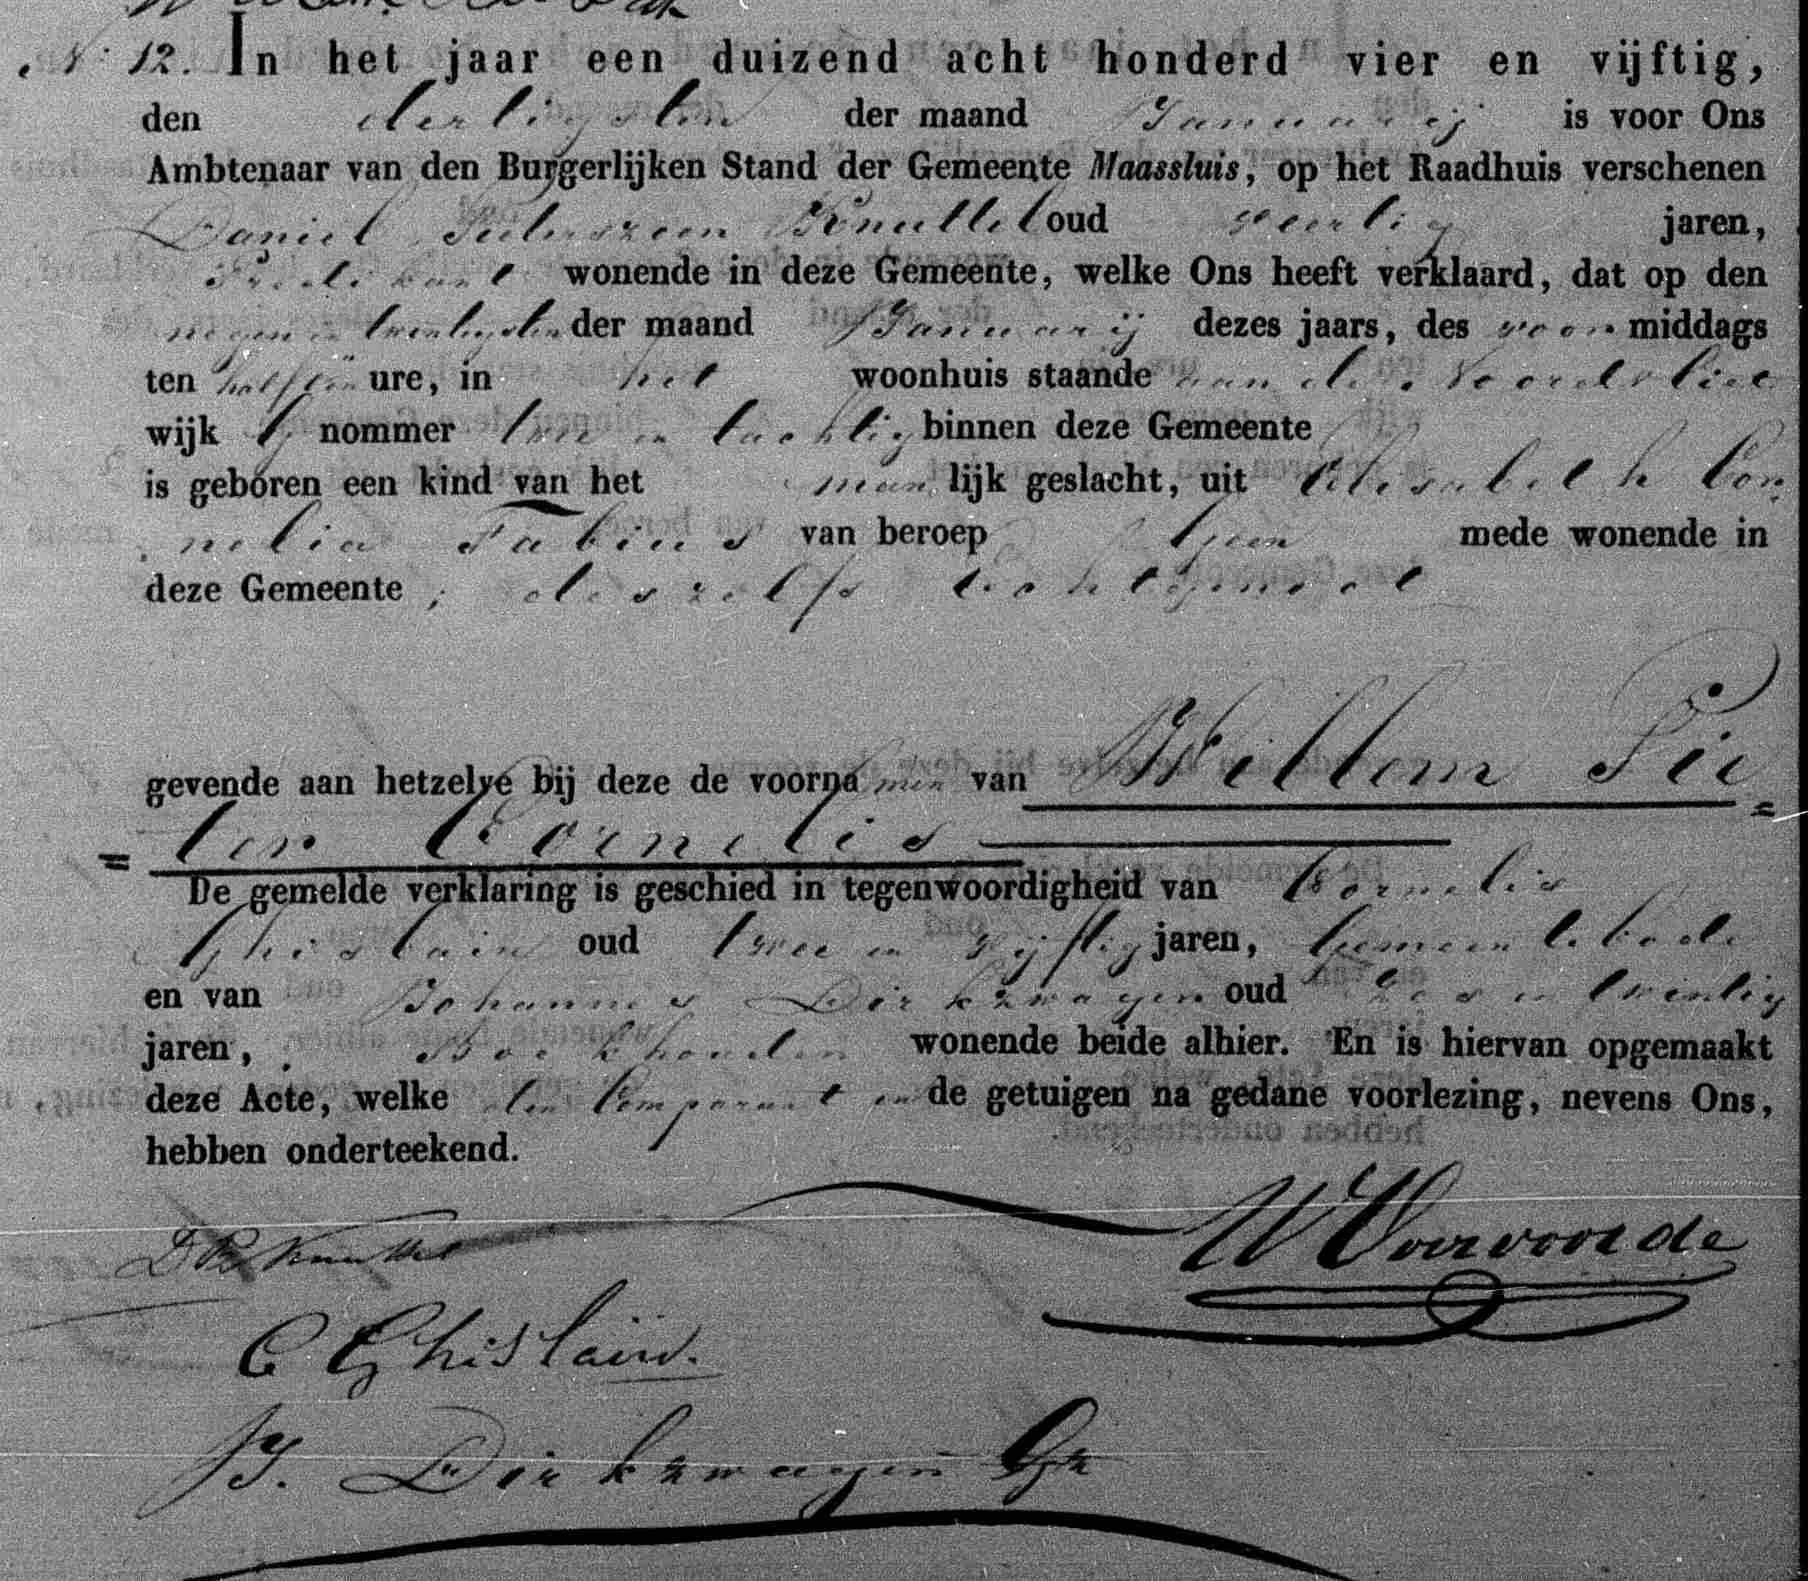 N: 12. In het jaar een duizend acht honderd vier en vijftig,
den dertigsten der maand Januarij is voor Ons
Ambtenaar van den Burgerlijken Stand der Gemeente Maassluis, op het Raadhuis verschenen
Daniel Pieterszoon Knuttel oud veertig jaren,
Predikant wonende in deze Gemeente, welke Ons heeft verklaard, dat op den
negen en twintigsten der maand Januarij dezes jaars, des voormiddags
ten half tien ure, in het woonhuis staande aan de Noordvliet
wijk G nommer twee en tachtig binnen deze Gemeente
is geboren een kind van het manlijk geslacht, uit Elisabeth Cor
nelia Fabius van beroep geen mede wonende in
deze Gemeente, deszelfs Echtgenoot
gevende aan hetzelve bij deze de voornamen van Willem Pie=
=ter Cornelis
De gemelde verklaring is geschied in tegenwoordigheid van Cornelis
Ghislain oud twee en vijftig jaren, Gemeentebode
en van Johannes Dirkzwagen oud zes en twintig
jaren, Boekhouder wonende beide alhier. En is hiervan opgemaakt
deze Acte, welke den Comparant en de getuigen na gedane voorlezing, nevens Ons,
hebben onderteekend.
Knuttel W Voorvoorde
C Ghislain.
J. Dirkzwagen Gz